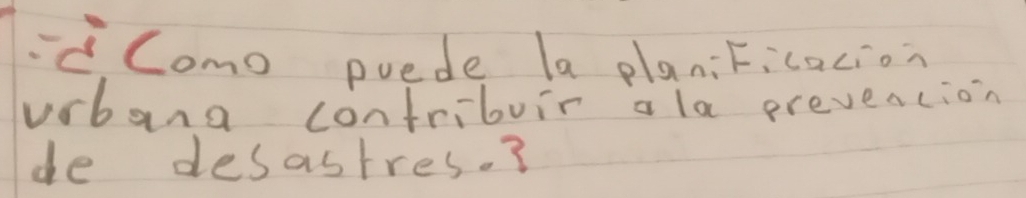 -¿Como puede la planificación
urbana contribuir a la prevención
de desastres.?